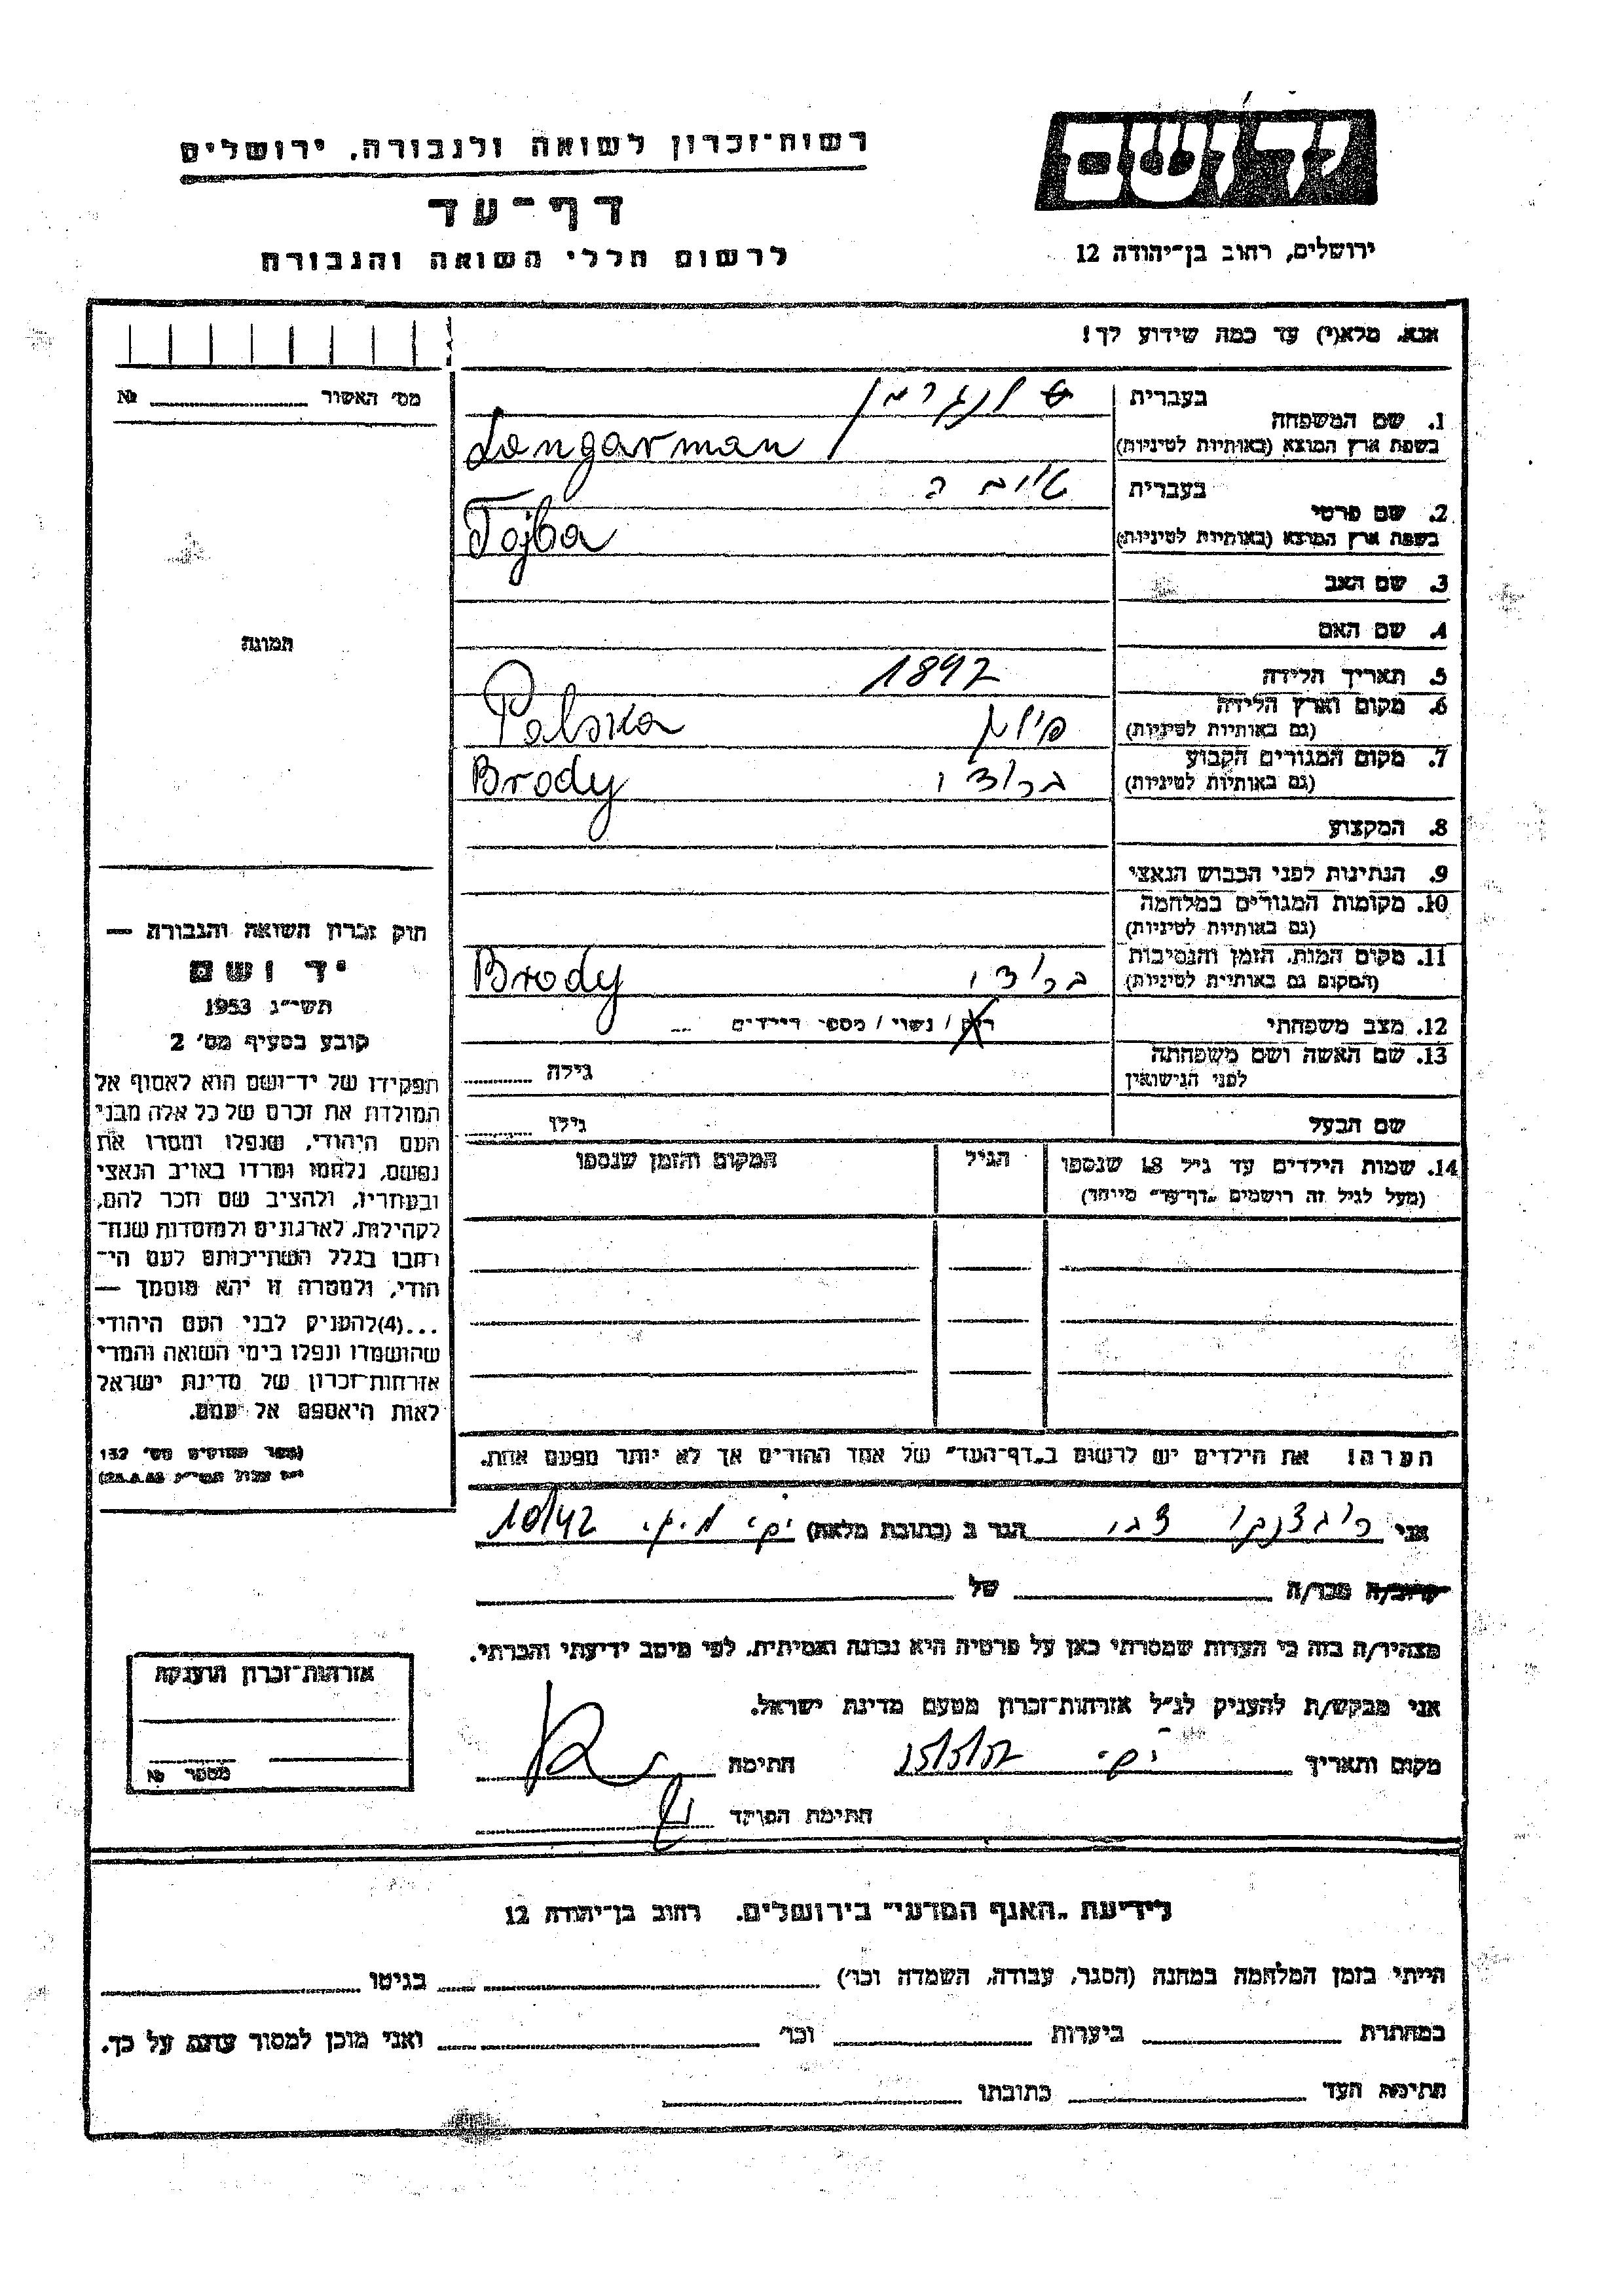 יד ושם
רשות־זכרון לשואה ולגבורה, ירושלים
דף־עד
לרשום חללי השואה והגבורה
ירושלים, רחוב בן־יהודה 12
אנא, מלא(י) עד כמה שידוע לך!
מס׳ האשור №
1. שם המשפחה
בעברית
בשפת ארץ המוצא (באותיות לטיניות) Langarman
2. שם פרטי
בעברית טויבה
בשפת ארץ המוצא (באותיות לטיניות) Tojba
3. שם האב
4. שם האם
תמונה
5. תאריך הלידה 1892
6. מקום וארץ הלידה
(גם באותיות לטיניות) פולין Polska
7. מקום המגורים הקבוע
(גם באותיות לטיניות) ברודי Brody
8. המקצוע
9. הנתינות לפני הכבוש הנאצי
10. מקומות המגורים במלחמה
(גם באותיות לטיניות)
11. מקום המות, הזמן והנסיבות
(המקום גם באותיות לטיניות) ברודי Brody
12. מצב משפחתי רוק / נשוי / מספר הילדים
13. שם האשה ושם משפחתה
לפני הנישואין גילה
שם הבעל גילו
14. שמות הילדים עד גיל 18 שנספו הגיל המקום והזמן שנספו
(מעל לגיל זה רושמים „דף־עד״ מיוחד)
חוק זכרון השואה והגבורה —
יד ושם
תשי״ג 1953
קובע בסעיף מס׳ 2
תפקידו של יד־ושם הוא לאסוף אל
המולדת את זכרם של כל אלה מבני
העם היהודי, שנפלו ומסרו את
נפשם, נלחמו ומרדו באויב הנאצי
ובעוזריו, ולהציב שם וזכר להם,
לקהילות, לארגונים ולמוסדות שנח־
רבו בגלל השתייכותם לעם הי־
הודי, ולמטרה זו יהא מוסמך —
...(4)להעניק לבני העם היהודי
שהושמדו ונפלו בימי השואה והמרי
אזרחות־זכרון של מדינת ישראל
לאות היאספם אל עמם.
(ספר החוקים מס׳ 132
הערה! את הילדים יש לרשום ב„דף־העד״ של אחד ההורים אך לא יותר מפעם אחת.
אני צבי הגר ב (כתובת מלאה) יפו 10/42
קרוב/ה מכר/ה של
מצהיר/ה בזה כי העדות שמסרתי כאן על פרטיה היא נכונה ואמיתית, לפי מיטב ידיעתי והכרתי.
אני מבקש/ת להעניק לנ״ל אזרחות־זכרון מטעם מדינת ישראל.
מקום ותאריך יפו חתימה
חתימת הפוקד
אזרחות־זכרון הוענקה
מספר №
לידיעת „האגף המדעי״ בירושלים, רחוב בן־יהודה 12
הייתי בזמן המלחמה במחנה (הסגר, עבודה, השמדה וכו׳) בגיטו
במחתרת ביערות וכו׳ ואני מוכן למסור עדות על כך.
חתימת העד כתובתו